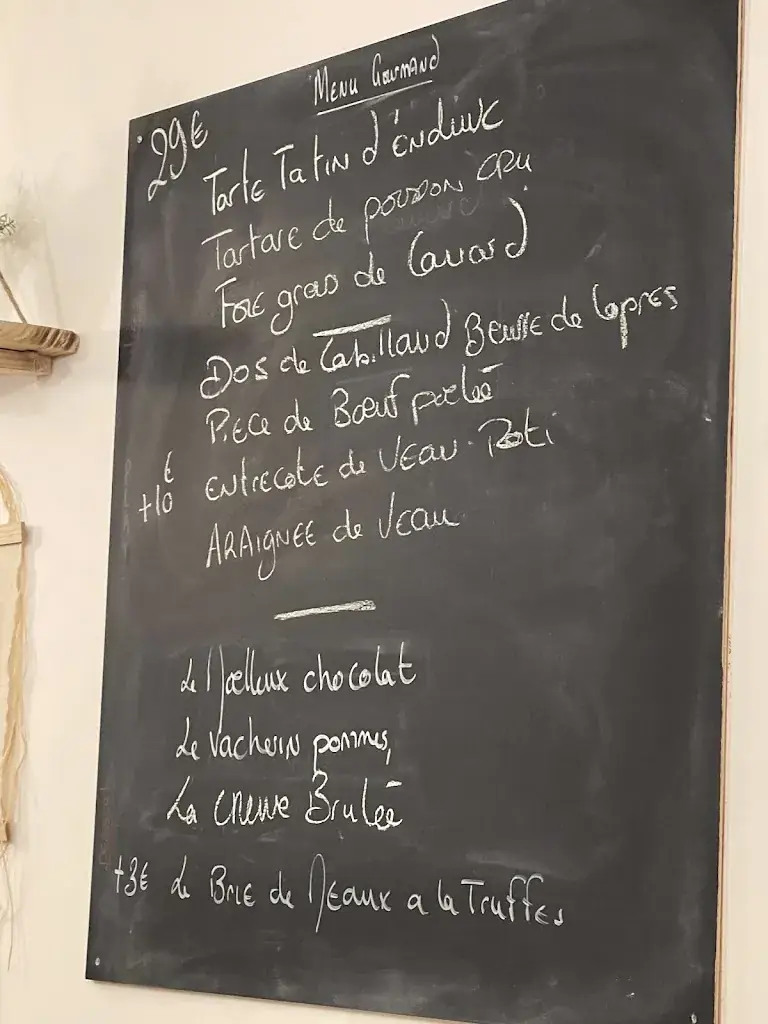 Menu Gourmand
29€
Tarte Tatin d'endive
Tartare de poisson cru
Foie gras de Canard
Dos de Cabillaud Beurre de Capres
Piece de Bœuf poelée
+10€ entrecote de Veau Roti
ARAignEE de Veau
Le Moelleux chocolat
Le Vacherin pommes,
La creme Brulée
+3€ Le Brie de Meaux a la Truffes